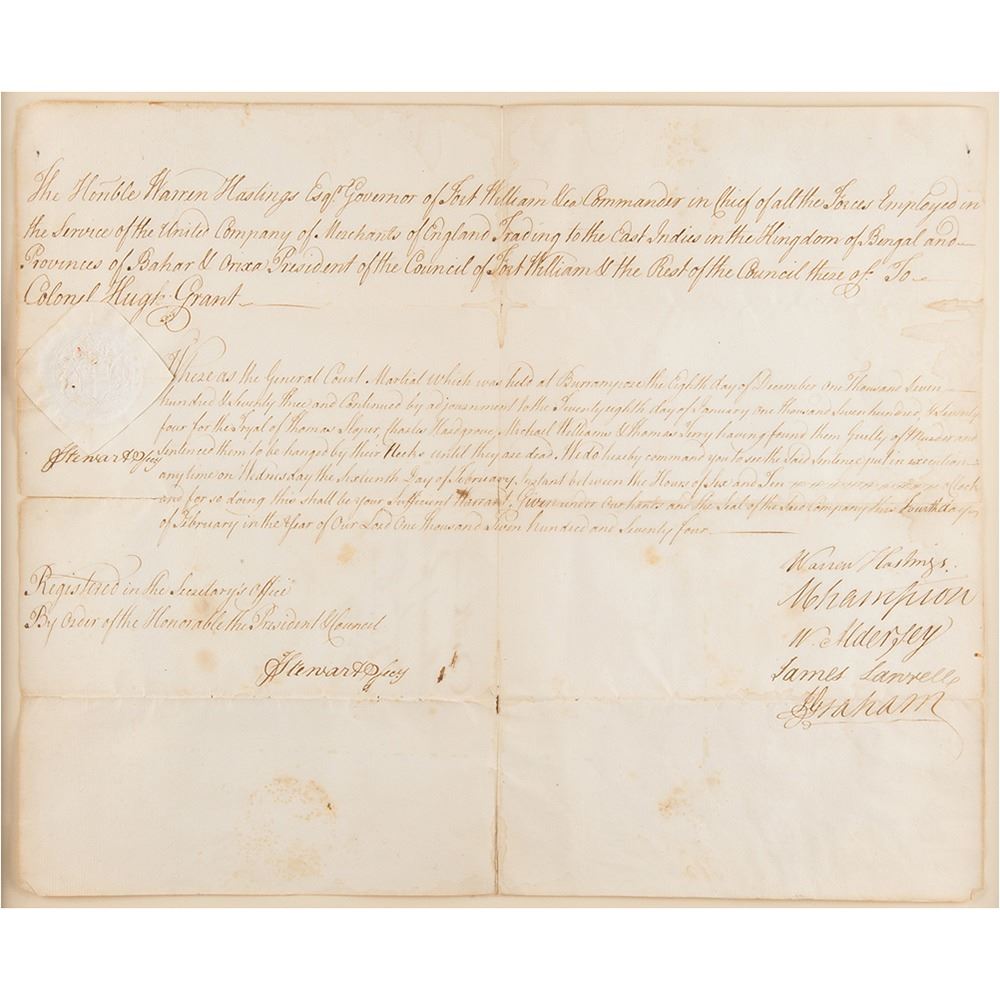 The Honble Warren Hastings Esqr. Governor of Fort William &ca Commander in Chief of all the Forces Employed in
the Service of the United Company of Merchants of England Trading to the East Indies in the Kingdom of Bengal and
Provinces of Bahar & Orixa President of the Council of Fort William & the Rest of the Council there of. To
Colonel Hugh Grant
Where as the General Court Martial Which was held at Burrampore the Eighth day of December One Thousand Seven
hundred & Seventy three and Continued by adjournment to the Twenty eighth day of January one thousand Seven hundred & Seventy
four for the Tryal of Thomas Charles Hardgrove, Michael Williams & Thomas Terry having found them Guilty of Murder and
Sentenced them to be hanged by their Necks until they are dead. We do hereby command you to see the Said Sentence put in execution
any time on Wednesday the Sixteenth Day of February Instant between the Hours of Six and Ten o Clock
and for so doing this shall be your Sufficient Warrant. Given under Our hands and the Seal of the Said Company this Fourth day
of February in the Year of Our Lord One Thousand Seven Hundred and Seventy four.
JStewart Secy
Warren Hastings.
Registered in the Secretary's Office
By Order of the Honorable the President & Council
JStewart Secy
W. Aldersey
James Lawrell
JGraham